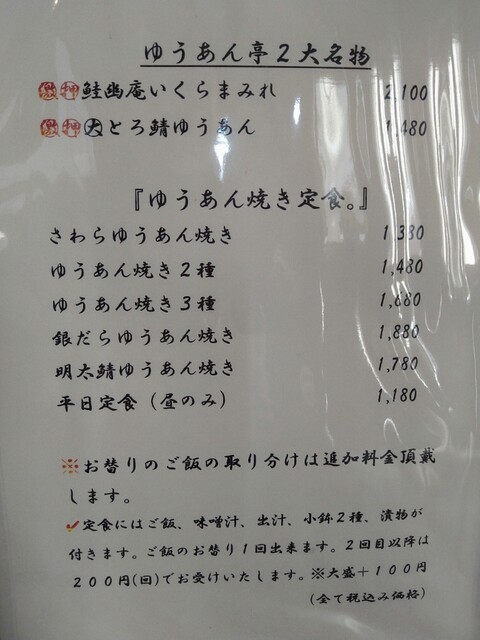 ゆうあん亭2大名物
激押鮭幽庵いくらまみれ 2,100
激押大とろ鯖ゆうあん 1,480
『ゆうあん焼き定食。』
さわらゆうあん焼き 1,380
ゆうあん焼き2種 1,480
ゆうあん焼き3種 1,680
銀だらゆうあん焼き 1,880
明太鯖ゆうあん焼き 1,780
平日定食(昼のみ) 1,180
※お替りのご飯の取り分けは追加料金頂戴
します。
✓定食にはご飯、味噌汁、出汁、小鉢2種、漬物が
付きます。ご飯のお替り1回出来ます。2回目以降は
200円(回)でお受けいたします。※大盛+100円
(全て税込み価格)